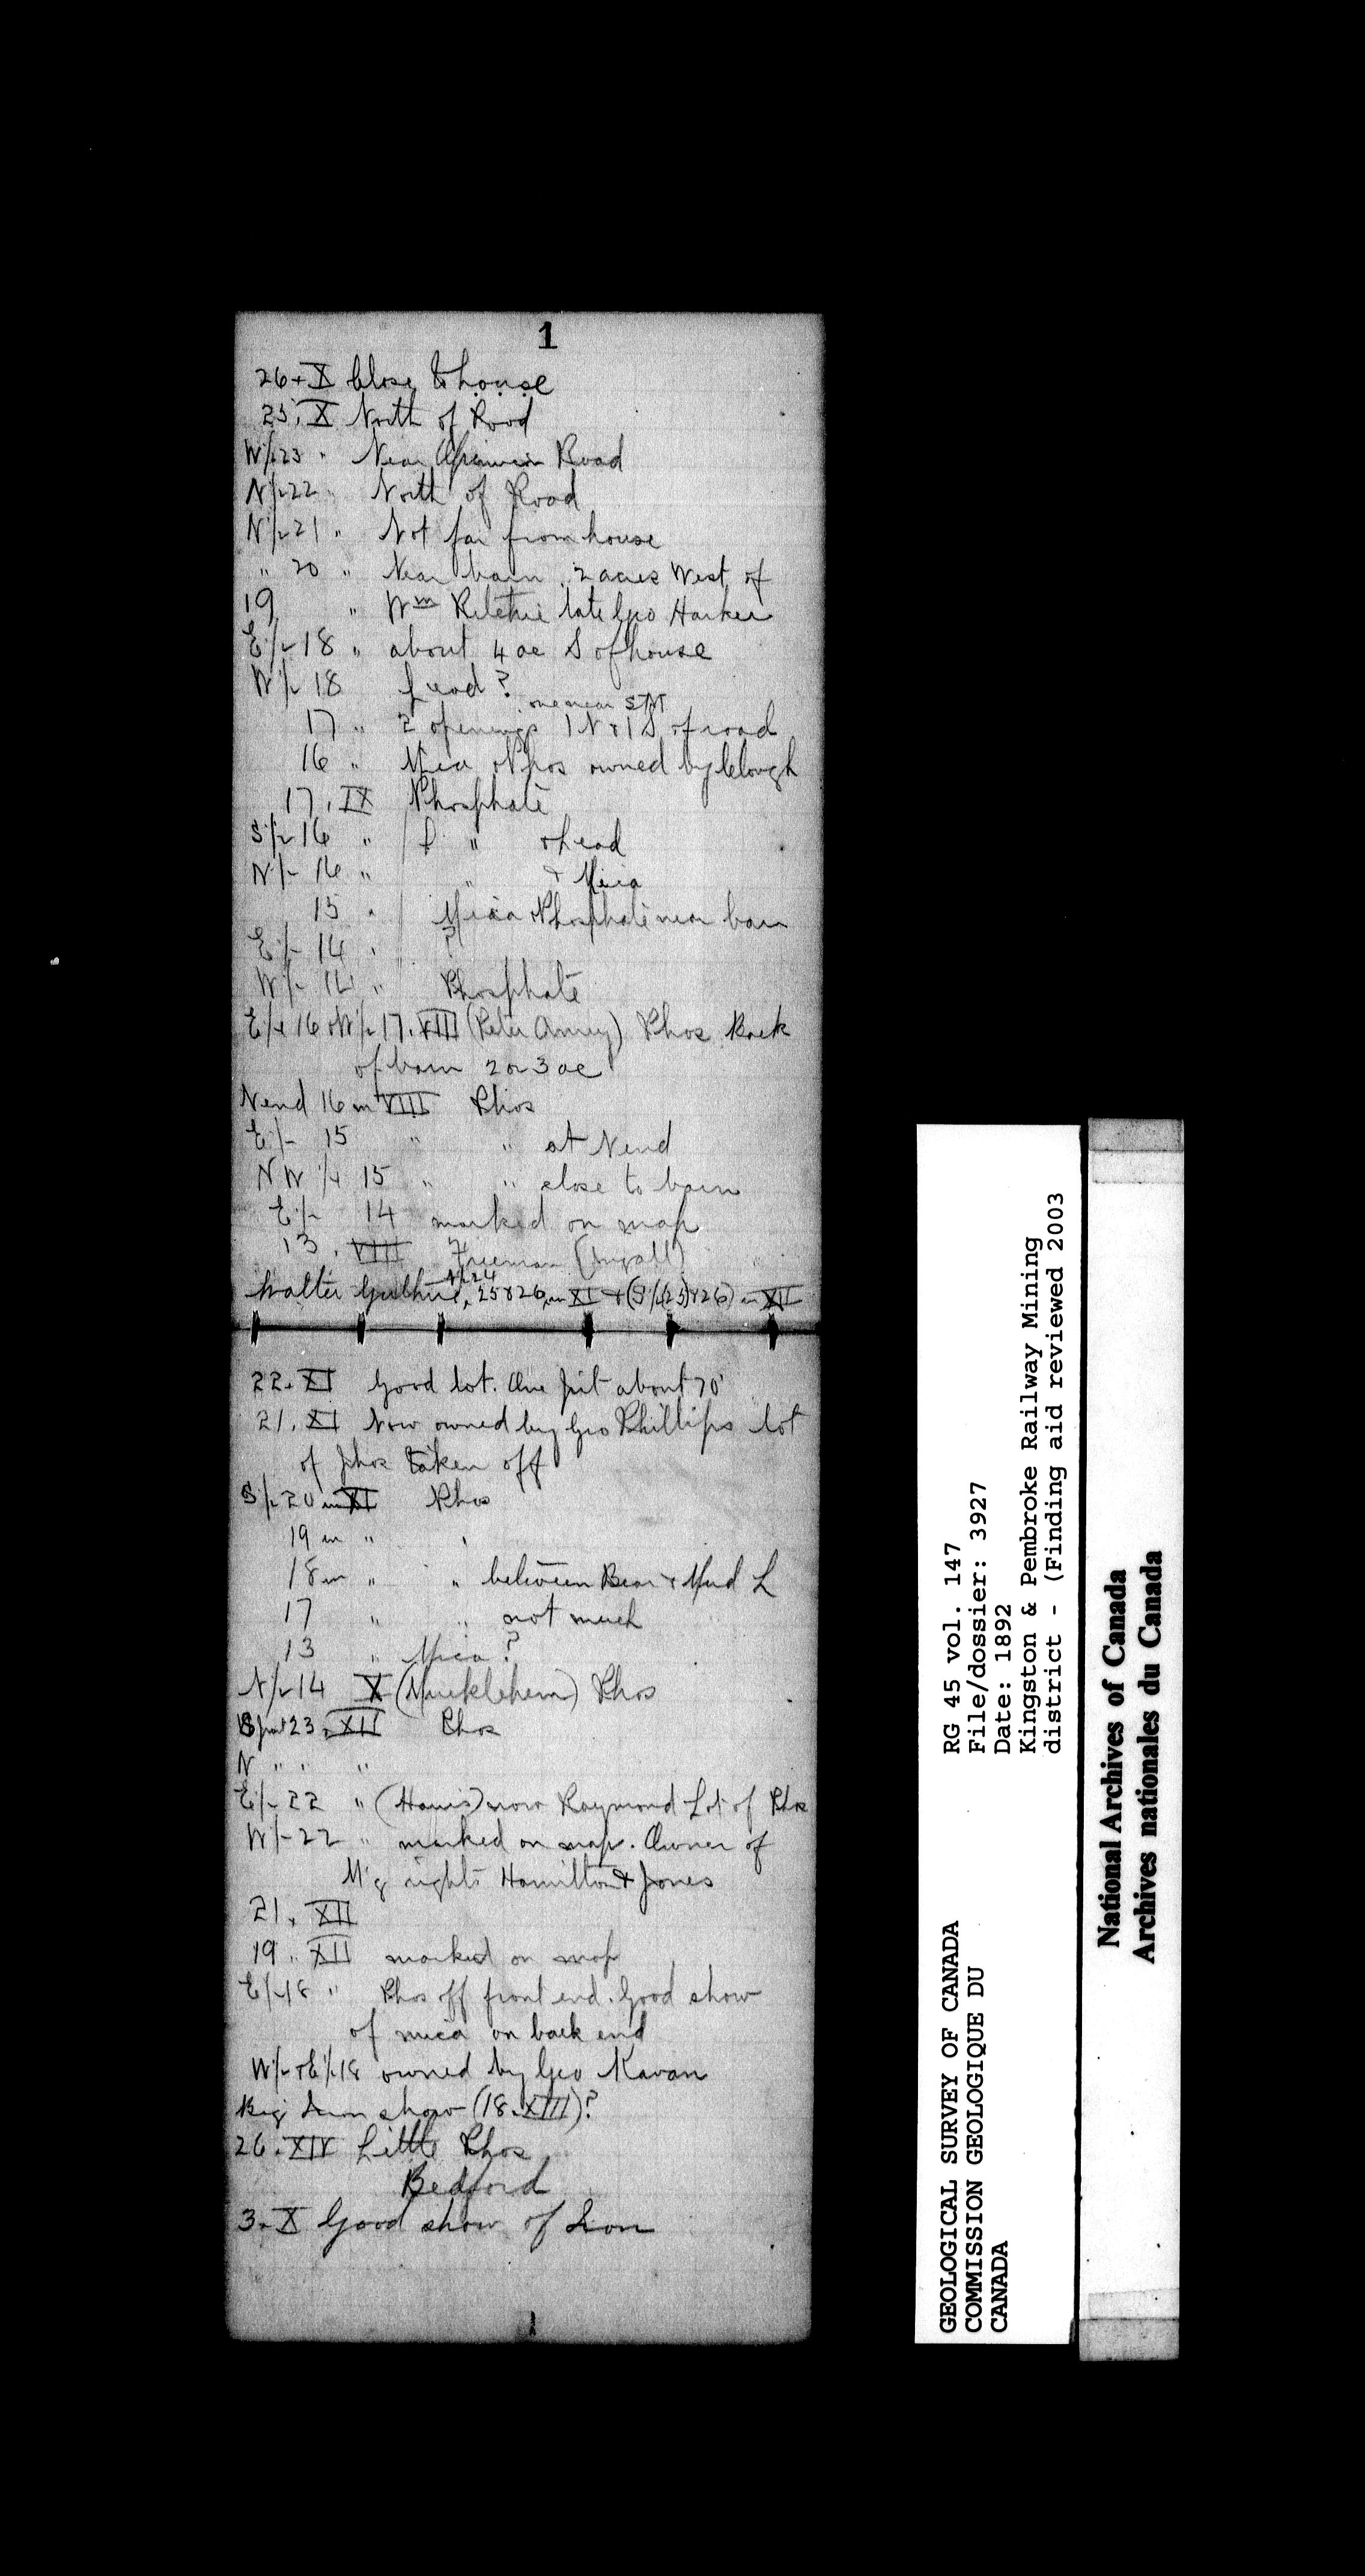 1
26 + X Close to house
25, X North of Road
W½ 23 " Near Road
N½ 22 " North of Road
N½ 21 " Not far from house
" 20 " Near barn. 2 acres West of
19 " Wm Ritchie late Geo Harker
E½ 18 " about 4 ac S of house
W½ 18 Lead?
one near
17 " 2 openings 1 N & 1 S of road
16 " Mica & Phos owned by Clough
17, IX Phosphate
S½ 16 " " & Lead
N½ 16 " " & Mica
15 " Mica & Phosphate near barn
E½ 14 " ?
W½ 14 " Phosphate
E½ 16 & W½ 17. VIII (Peter Amey) Phos Back
of barn 2 or 3 ac
N end 16 in VIII Phos
E½ 15 " " at N end
NW ¼ 15 " " close to barn
E½ 14 marked on map
13, VIII Freeman (Ingall)
N½ 24
Walter Guthrie, 25 & 26 in XI + (S½ (25) & 26) in XII
22. XI Good lot. One pit about 70'
21, XI Now owned by Geo Phillips lot
of phos taken off
S½ 20 in XI Phos
19 in " "
18 in " " between Bear & Mud L
17 " " not much
13 " Mica?
N½ 14 X Phos
S part 23, XII Phos
N " " "
E½ 22 " (Harris) now Raymond Lot of Phos
W½ 22 " marked on map. Owner of
M'g rights Hamilton & Jones
21, XII
19 " XII marked on map
E½ 18 " Phos off front end. Good show
of mica on back end
W½ of E½ 18 owned by Geo Kavan
Big Iron show (18. XIII)?
26. XIV Little Phos
Bedford
3. X Good show of Iron
1
GEOLOGICAL SURVEY OF CANADA
COMMISSION GEOLOGIQUE DU
CANADA
RG 45 vol. 147
File/dossier: 3927
Date: 1892
Kingston & Pembroke Railway Mining
district - (Finding aid reviewed 2003
National Archives of Canada
Archives nationales du Canada